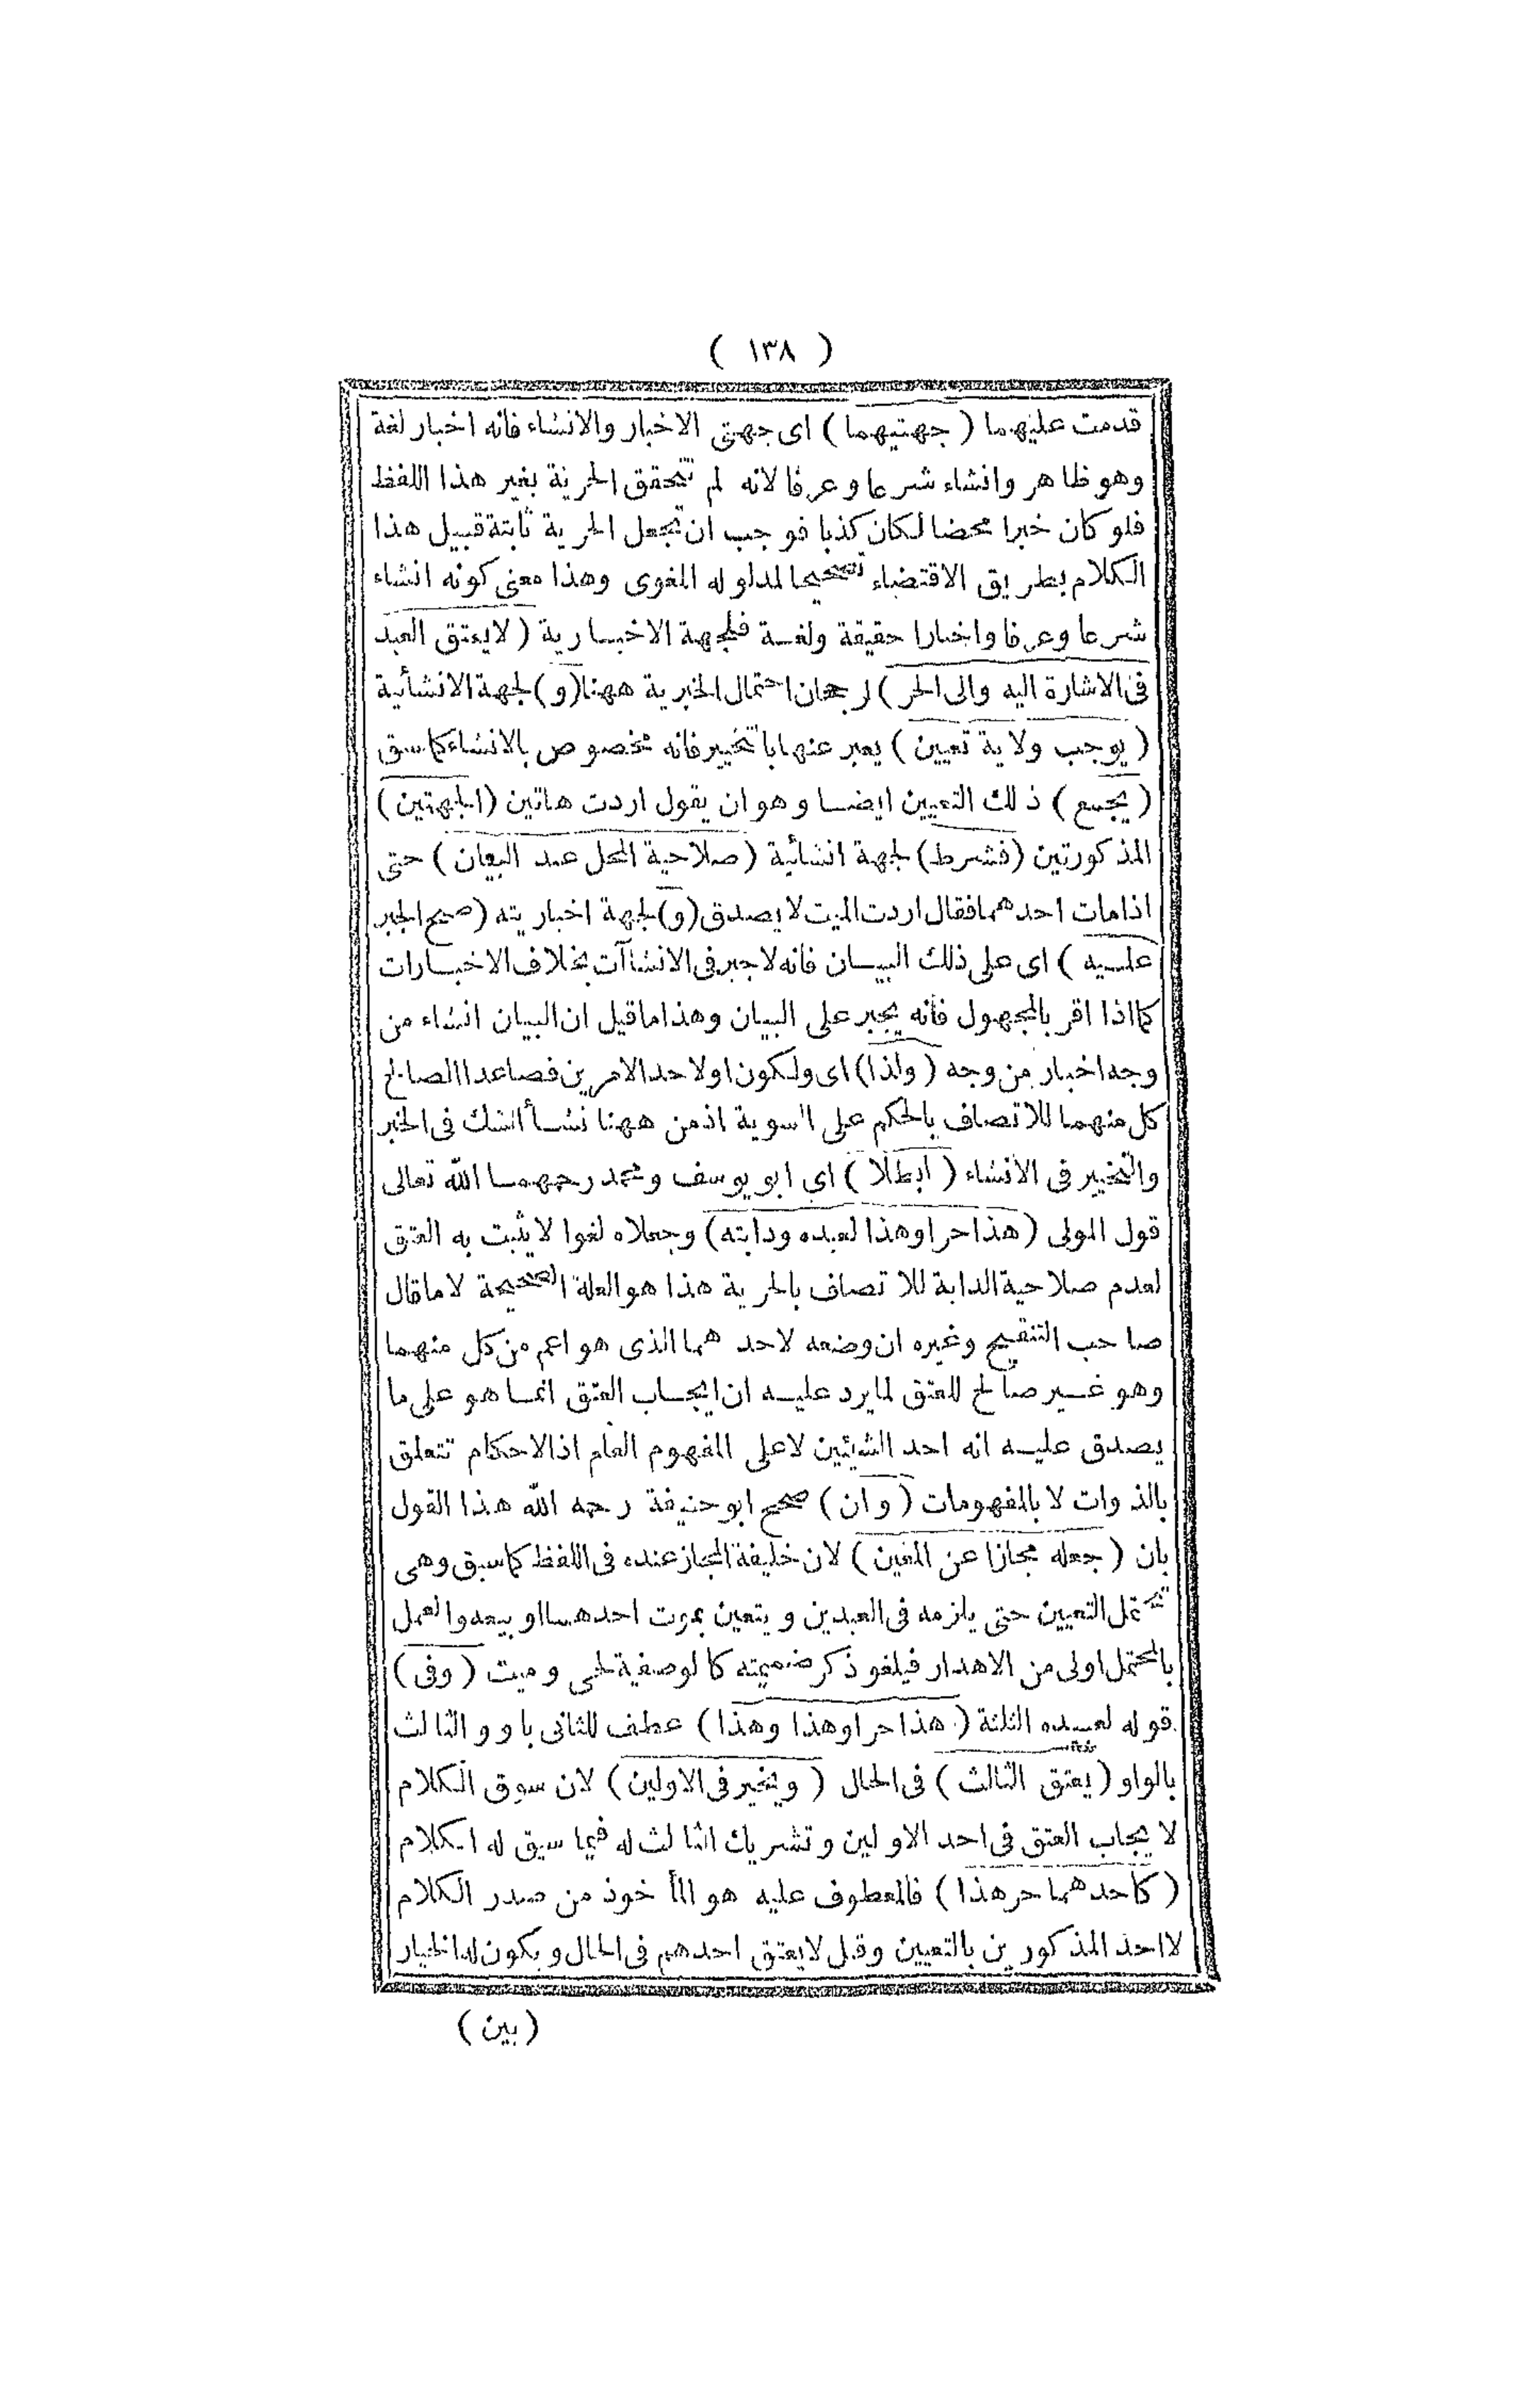 ( ١٣٨ )
قدمت عليهما ( جهتيهما ) اى جهتى الاخبار والانشاء فانه اخبار لغة
وهو ظاهر وانشاء شرعا وعرفا لانه لم تتحقق الحرية بغير هذا اللفظ
فلو كان خبرا محضا لكان كذبا فوجب ان تجعل الحرية ثابتة قبيل هذا
الكلام بطريق الاقتضاء تصحيحا لمدلوله اللغوى وهذا معنى كونه انشاء
شرعا وعرفا واخبارا حقيقة ولغة فلجهة الاخبارية ( لايعتق العبد
فى الاشارة اليه والى الحر ) لرجحان احتمال الخبرية ههنا (و) لجهة الانشائية
( يوجب ولاية تعيين ) يعبر عنها بالتخيير فانه مخصوص بالانشاء كما سبق
( يجمع ) ذلك التعيين ايضا وهو ان يقول اردت هاتين ( الجهتين )
المذكورتين (فشرط) لجهة انشائية ( صلاحية المحل عند البيان ) حتى
اذا مات احدهما فقال اردت الميت لا يصدق (و) لجهة اخباريته ( صح الجبر
عليه ) اى على ذلك البيان فانه لا جبر فى الانشاآت بخلاف الاخبارات
كما اذا اقر بالمجهول فانه يجبر على البيان وهذا ما قيل ان البيان انشاء من
وجه اخبار من وجه ( ولذا ) اى ولكون او لاحد الامرين فصاعدا الصالح
كل منهما للاتصاف بالحكم على السوية اذ من ههنا نشأ الشك فى الخبر
والتخيير فى الانشاء ( ابطلا ) اى ابو يوسف ومحمد رحمهما الله تعالى
قول المولى ( هذا حر او هذا لعبده ودابته ) وجعلاه لغوا لا يثبت به العتق
لعدم صلاحية الدابة للاتصاف بالحرية هذا هو العلة الصحيحة لا ما قال
صاحب التنقيح وغيره ان وضعه لاحدهما الذى هو اعم من كل منهما
وهو غير صالح للعتق لما يرد عليه ان ايجاب العتق انما هو على ما
يصدق عليه انه احد الشيئين لا على المفهوم العام اذ الاحكام تتعلق
بالذوات لا بالمفهومات ( وان ) صحح ابو حنيفة رحمه الله هذا القول
بان ( جعله مجازا عن المعين ) لان خليفة المجاز عنده فى اللفظ كما سبق وهى
تحتمل التعيين حتى يلزمه فى العبدين ويتعين بموت احدهما او بيعه والعمل
بالمحتمل اولى من الاهدار فيلغو ذكر ضميمته كالوصية لحى وميت ( وفى )
قوله لعبيده الثلثة ( هذا حر او هذا وهذا ) عطف للثانى باو والثالث
بالواو ( يعتق الثالث ) فى الحال ( ويخير فى الاولين ) لان سوق الكلام
لايجاب العتق فى احد الاولين وتشريك الثالث له فيما سيق له الكلام
( كاحدهما حر هذا ) فالمعطوف عليه هو المأخوذ من صدر الكلام
لا احد المذكورين بالتعيين وقيل لايعتق احدهم فى الحال ويكون له الخيار
( بين )